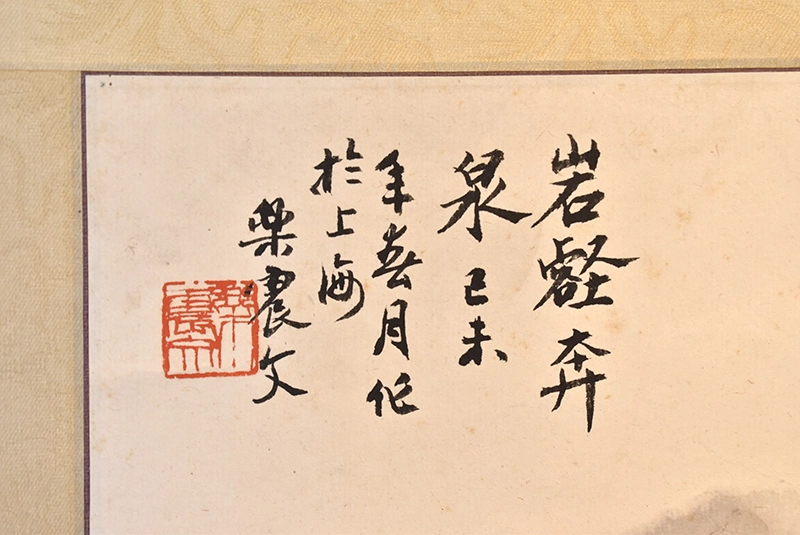 岩壑奔
泉己未
年春月作
於上海
樂震文